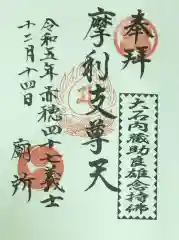 奉拝
大石内蔵助良雄念持佛
摩利支尊天
令和五年赤穂四十七義士
十二月十四日
廟所